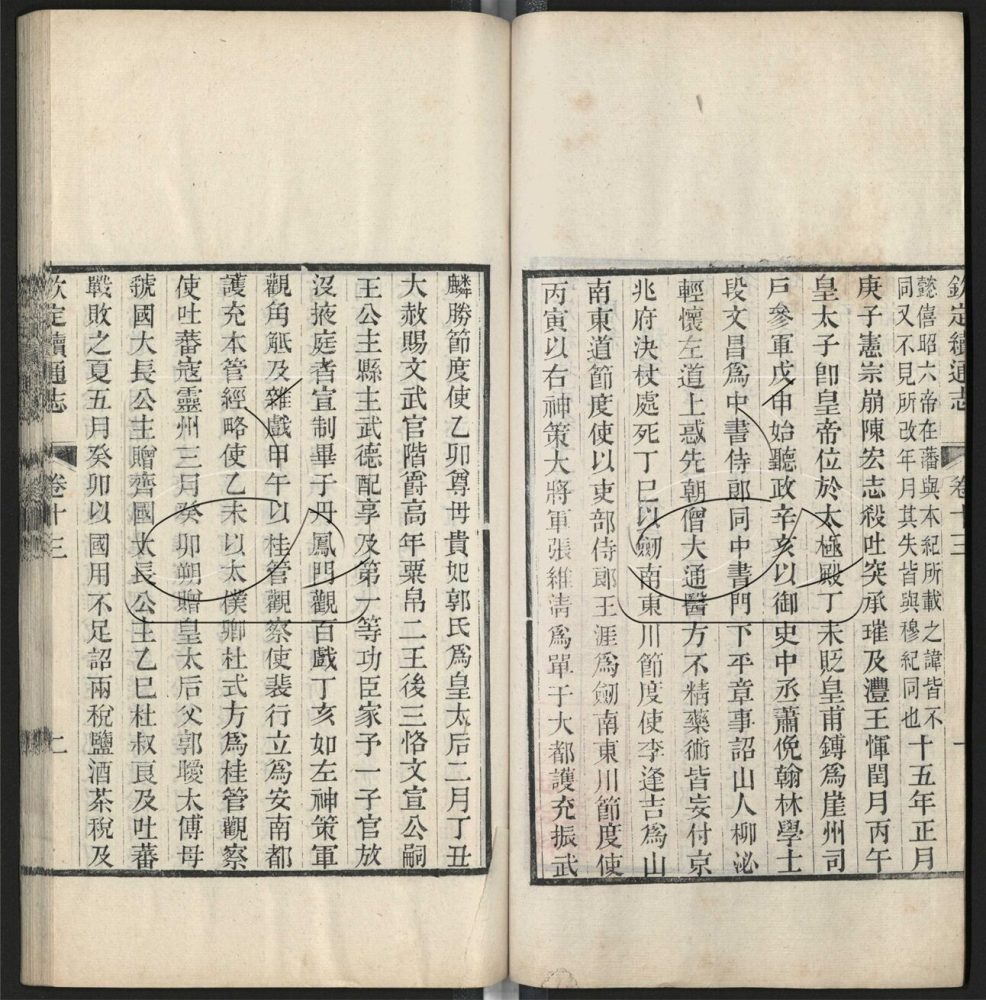 欽定續通志 卷十三 一
懿僖昭六帝在藩與本紀所載之諱皆不
同又不見所改年月其失皆與穆紀同也
十五年正月
庚子憲宗崩陳宏志殺吐突承璀及灃王惲閏月丙午
皇太子卽皇帝位於太極殿丁未貶皇甫鎛爲崖州司
戸參軍戊申始聽政辛亥以御史中丞蕭俛翰林學士
段文昌爲中書侍郎同中書門下平章事詔山人柳泌
輕懷左道上惑先朝僧大通醫方不精藥術皆妄付京
兆府決杖處死丁巳以劒南東川節度使李逢吉爲山
南東道節度使以吏部侍郎王涯爲劒南東川節度使
丙寅以右神策大將軍張維淸爲單于大都護充振武
麟勝節度使乙卯尊母貴妃郭氏爲皇太后二月丁丑
大赦賜文武官階爵高年粟帛二王後三恪文宣公嗣
王公主縣主武德配享及第一等功臣家予一子官放
沒掖庭者宣制畢于丹鳳門觀百戲丁亥如左神策軍
觀角觝及雜戲甲午以桂管觀察使裴行立爲安南都
護充本管經略使乙未以太僕卿杜式方爲桂管觀察
使吐蕃寇靈州三月癸卯朔贈皇太后父郭曖太傅母
虢國大長公主贈齊國大長公主乙巳杜叔良及吐蕃
戰敗之夏五月癸卯以國用不足詔兩稅鹽酒茶稅及
欽定續通志 卷十三 二